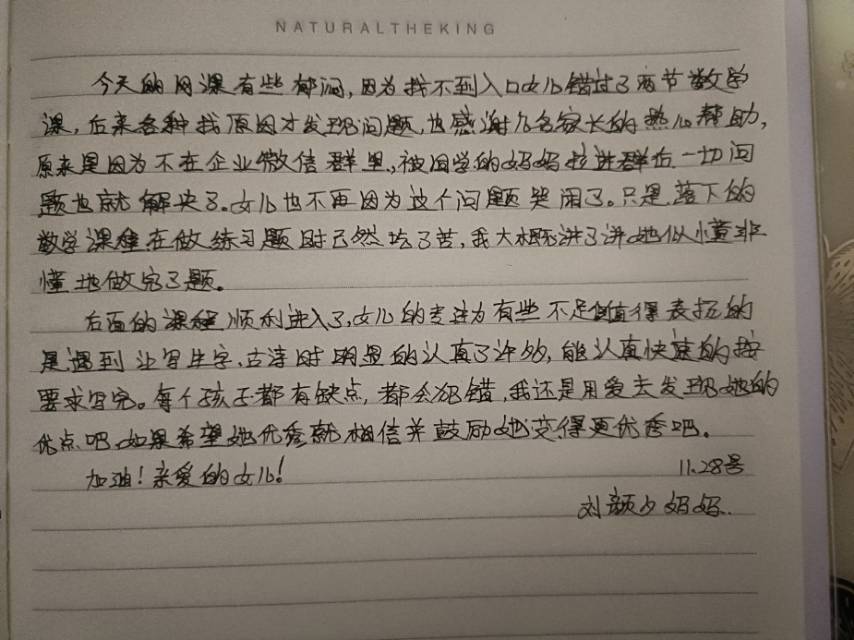 NATURALTHEKING
今天的网课有些郁闷,因为找不到入口女儿错过了两节数学
课,后来各种找原因才发现问题,也感谢几名家长的热心帮助,
原来是因为不在企业微信群里,被同学的妈妈拉进群后一切问
题也就解决了。女儿也不再因为这个问题哭闹了。只是落下的
数学课程在做练习题时已然吃了苦,我大概讲了讲她似懂非
懂地做完了题。
后面的课程顺利进入了,女儿的专注力有些不足但值得表扬的
是遇到让写生字、古诗时明显的认真了许多,能认真快速的按
要求写完。每个孩子都有缺点,都会犯错,我还是用爱去发现她的
优点吧。如果希望她优秀就相信并鼓励她变得更优秀吧。
加油!亲爱的女儿!
11.28号
刘颜夕妈妈..